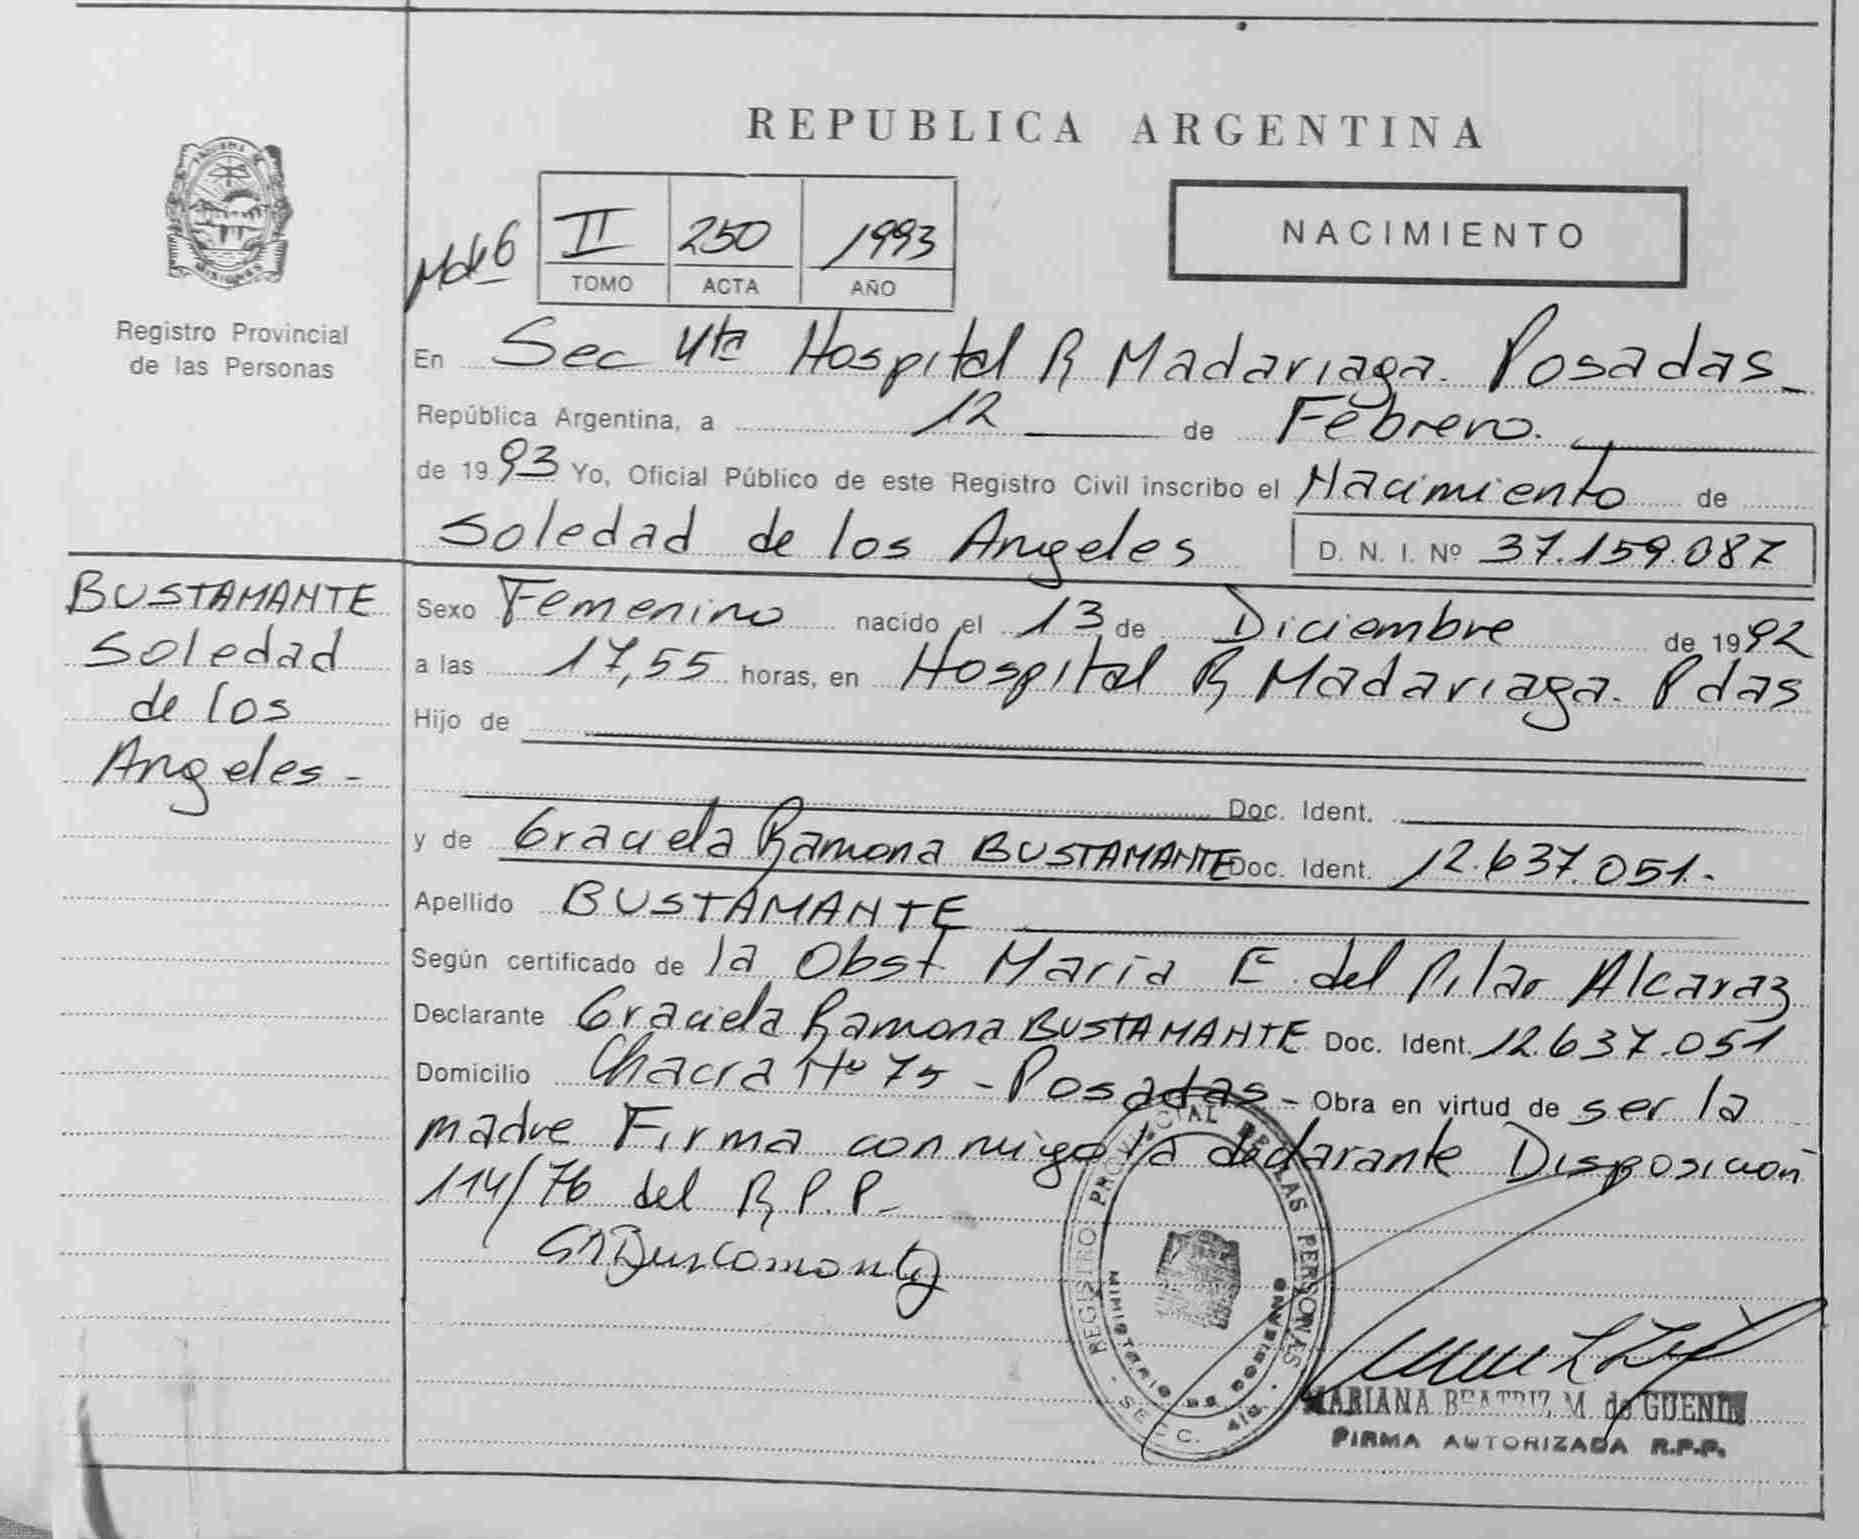 REPUBLICA ARGENTINA
NACIMIENTO
II 250 1993
TOMO ACTA AÑO
Registro Provincial
de las Personas
En Sec 4ta Hospital R Madariaga. Posadas
República Argentina, a 12 de Febrero.
de 1993 Yo, Oficial Público de este Registro Civil inscribo el Nacimiento de
Soledad de los Angeles D. N. I. Nº 37.159.087
BUSTAMANTE
Soledad
de los
Angeles-
Sexo Femenino nacido el 13 de Diciembre de 1992
a las 17,55 horas, en Hospital R Madariaga. Pdas
Hijo de
Doc. Ident.
y de Graciela Ramona BUSTAMANTE Doc. Ident. 12.637.051.-
Apellido BUSTAMANTE
Según certificado de la Obst María E. del Pilar Alcaraz
Declarante Graciela Ramona BUSTAMANTE Doc. Ident. 12.637.051
Domicilio Chacra Nº 75 - Posadas - Obra en virtud de ser la
madre Firma conmigo la declarante Disposicion
114/76 del R.P.P.-
REGISTRO PROVINCIAL DE LAS PERSONAS
MINISTERIO DE GOBIERNO
SECC. 4ta.
MARIANA BEATRIZ M. de GUENIN
FIRMA AUTORIZADA R.P.P.